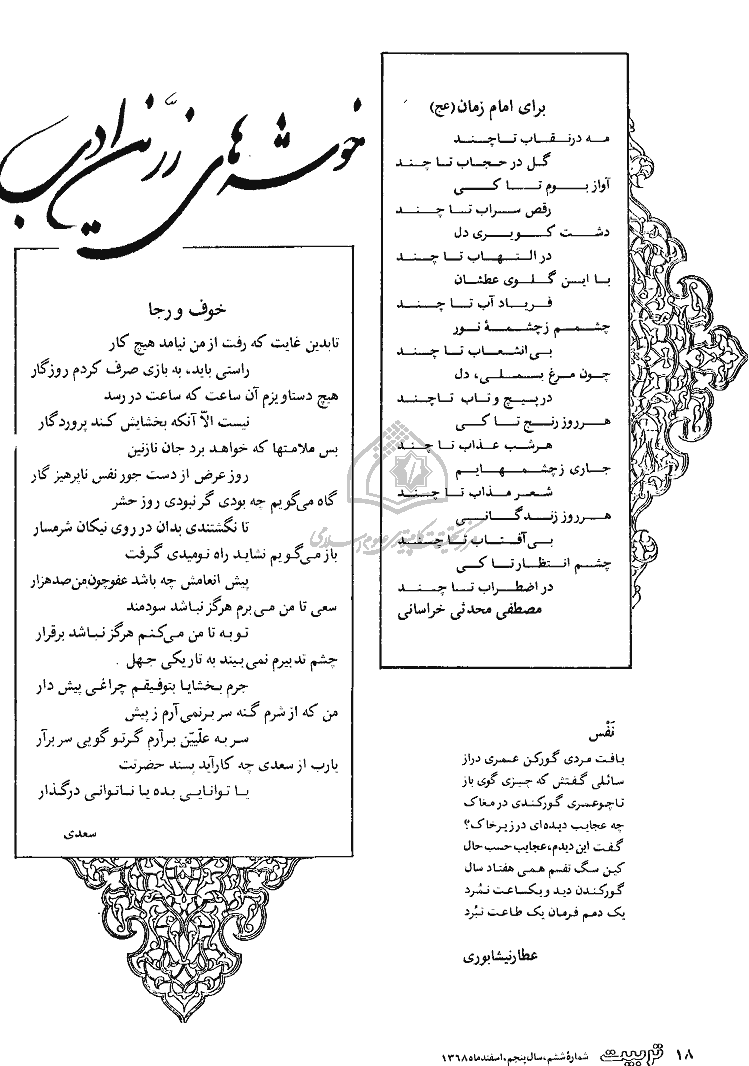 خوشه‌های زرّین ادب
برای امام زمان (عج)
مه در نقاب تا چند
گل در حجاب تا چند
آواز بوم تا کی
رقص سراب تا چند
دشت کویری دل
در التهاب تا چند
با این گلوی عطشان
فریاد آب تا چند
چشمم ز چشمهٔ نور
بی‌انشعاب تا چند
چون مرغ بسملی، دل
در پیچ و تاب تا چند
هر روز رنج تا کی
هر شب عذاب تا چند
جاری ز چشمهایم
شعر مذاب تا چند
هر روز زندگانی
بی‌آفتاب تا چند
چشم انتظار تا کی
در اضطراب تا چند
مصطفی محدثی خراسانی
خوف و رجا
تا بدین غایت که رفت از من نیامد هیچ کار
راستی باید، به بازی صرف کردم روزگار
هیچ دستاویزم آن ساعت که ساعت در رسد
نیست الاّ آنکه بخشایش کند پروردگار
بس ملامتها که خواهد برد جان نازنین
روز عرض از دست جور نفس ناپرهیزگار
گاه می‌گویم چه بودی گر نبودی روز حشر
تا نگشتندی بدان در روی نیکان شرمسار
باز می‌گویم نشاید راه نومیدی گرفت
پیش انعامش چه باشد عفو چون من صد هزار
سعی تا من می‌برم هرگز نباشد سودمند
توبه تا من می‌کنم هرگز نباشد برقرار
چشم تدبیرم نمی‌بیند به تاریکی جهل
جرم بخشایا بتوفیقم چراغی پیش دار
من که از شرم گنه سر برنمی‌آرم ز پیش
سر به علّیّن برآرم گر تو گویی سر برآر
یارب از سعدی چه کار آید پسند حضرتت
یا توانایی بده یا ناتوانی درگذار
سعدی
نَفْس
یافت مردی گورکن عمری دراز
سائلی گفتش که چیزی گوی باز
تا چو عمری گور کندی در مغاک
چه عجایب دیده‌ای در زیر خاک؟
گفت این دیدم، عجایب حسب حال
کین سگ نفسم همی هفتاد سال
گور کندن دید و یکساعت نمُرد
یک دمم فرمان یک طاعت نبُرد
عطار نیشابوری
۱۸ تربیت شمارهٔ ششم، سال پنجم، اسفند ماه ۱۳۶۸